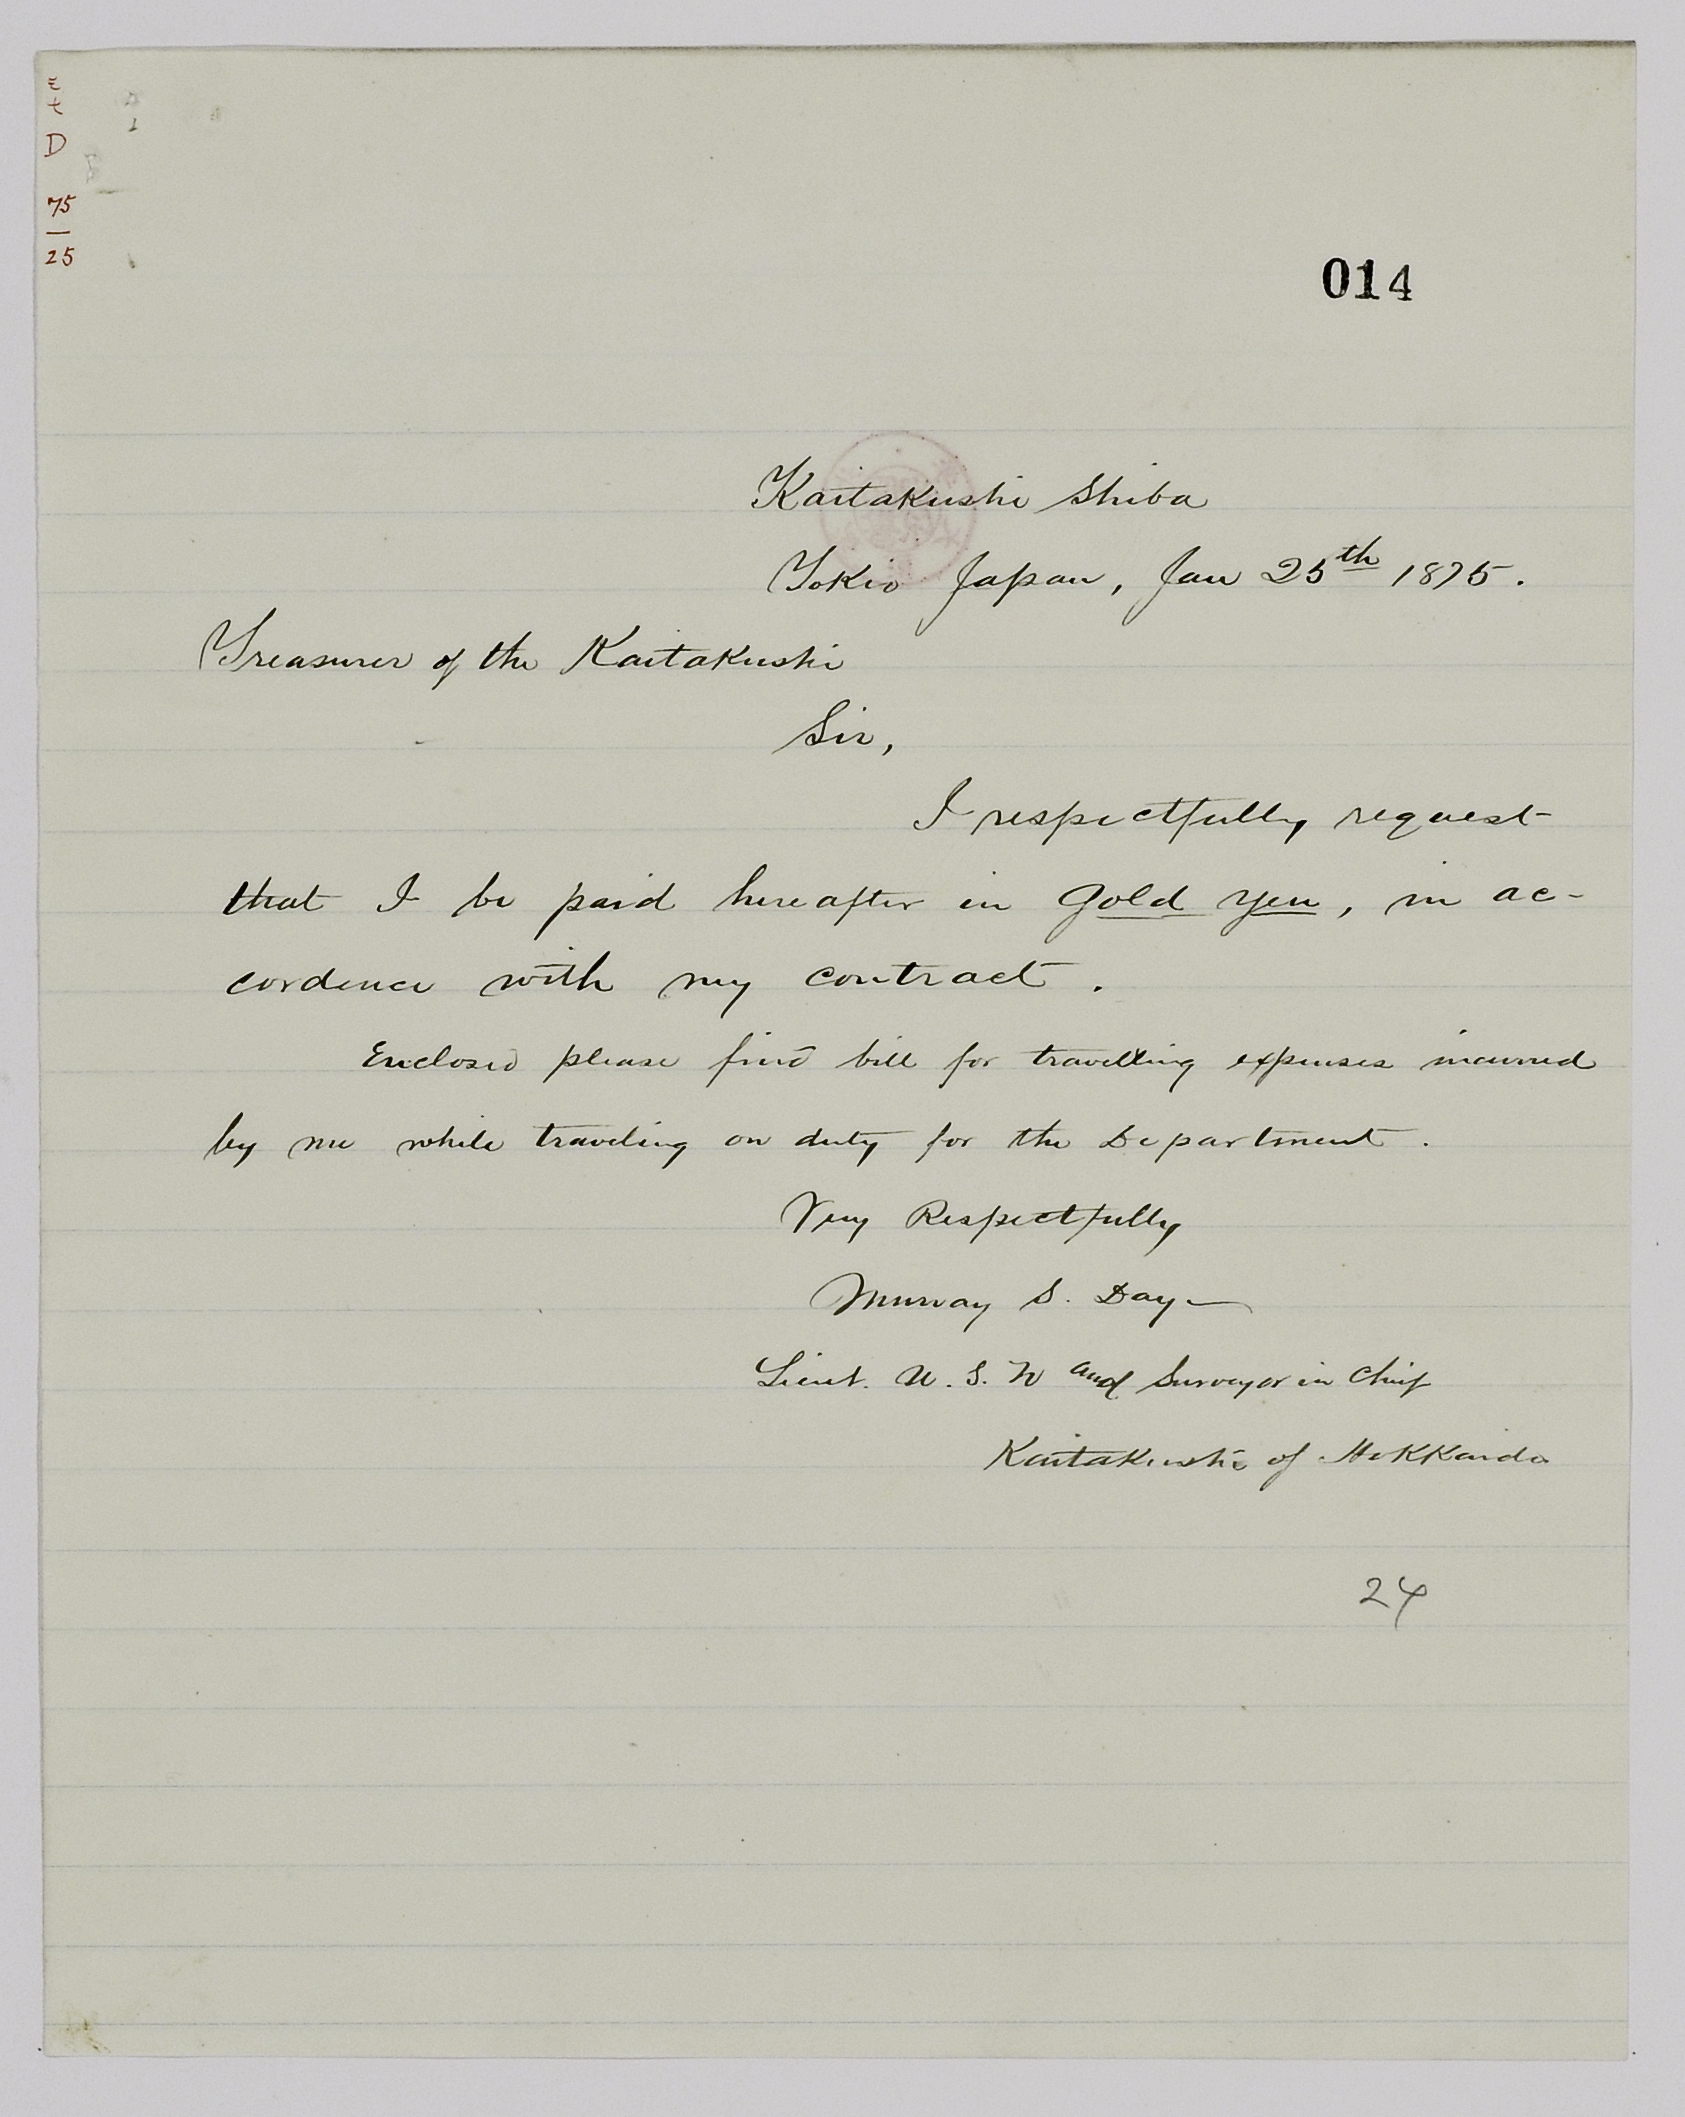 D
75
25
014
Kaitakushi Shiba
Tokio Japan, Jan 25th 1875.
Treasurer of the Kaitakushi
Sir,
I respectfully request
that I be paid hereafter in Gold Yen, in ac-
cordence with my contract.
Enclosed please find bill for travelling expenses incurred
by me while traveling on duty for the Department.
Very Respectfully
Murray S. Day
Lieut. U.S.N and Surveyor in Chief
Kaitakushi of Hokkaido
24